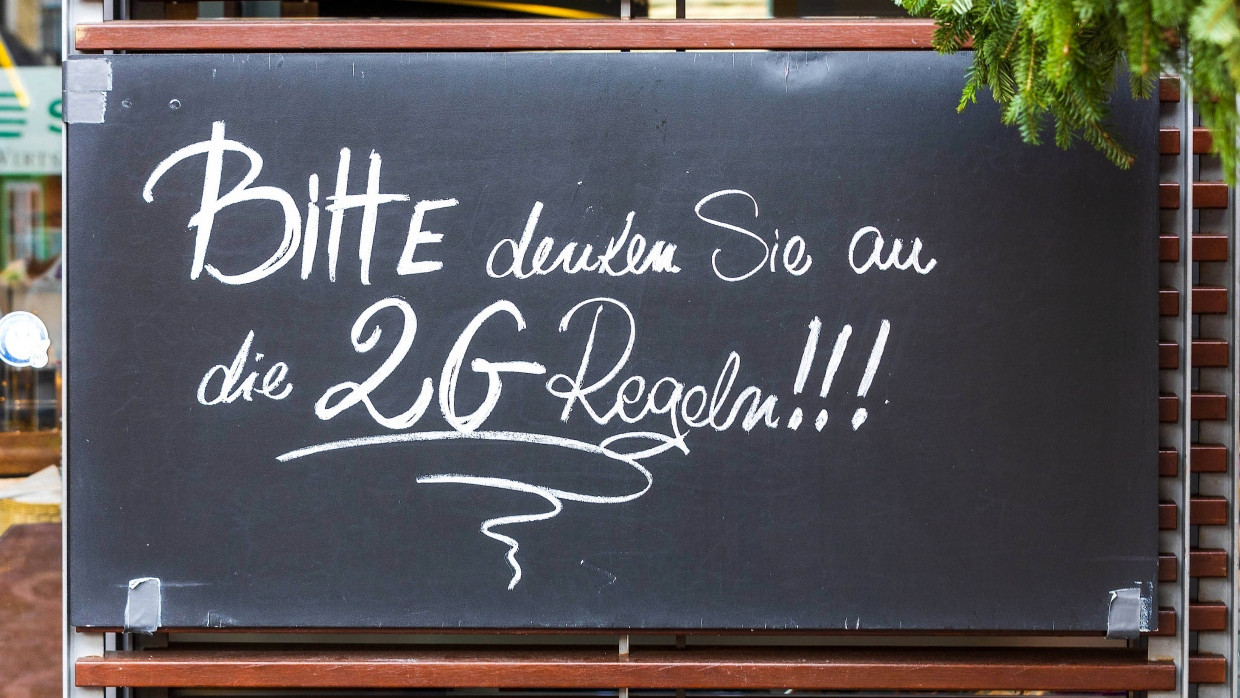 BITTE denken Sie an
die 2G-Regeln!!!